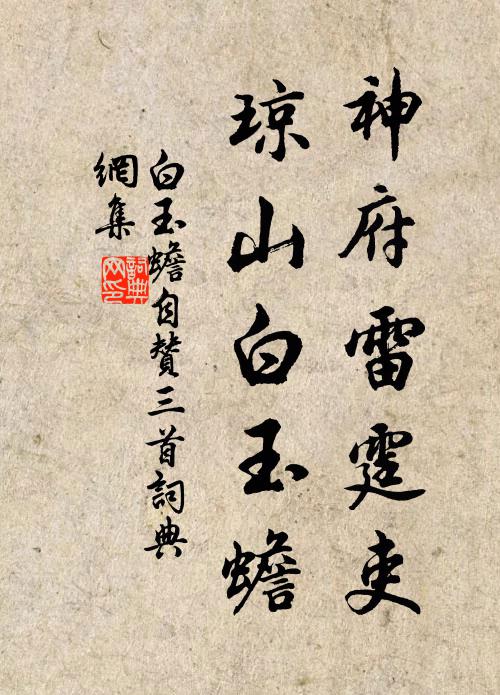 神府雷霆吏
琼山白玉蟾
白玉蟾自赞三首詞典
網集
詞典网印